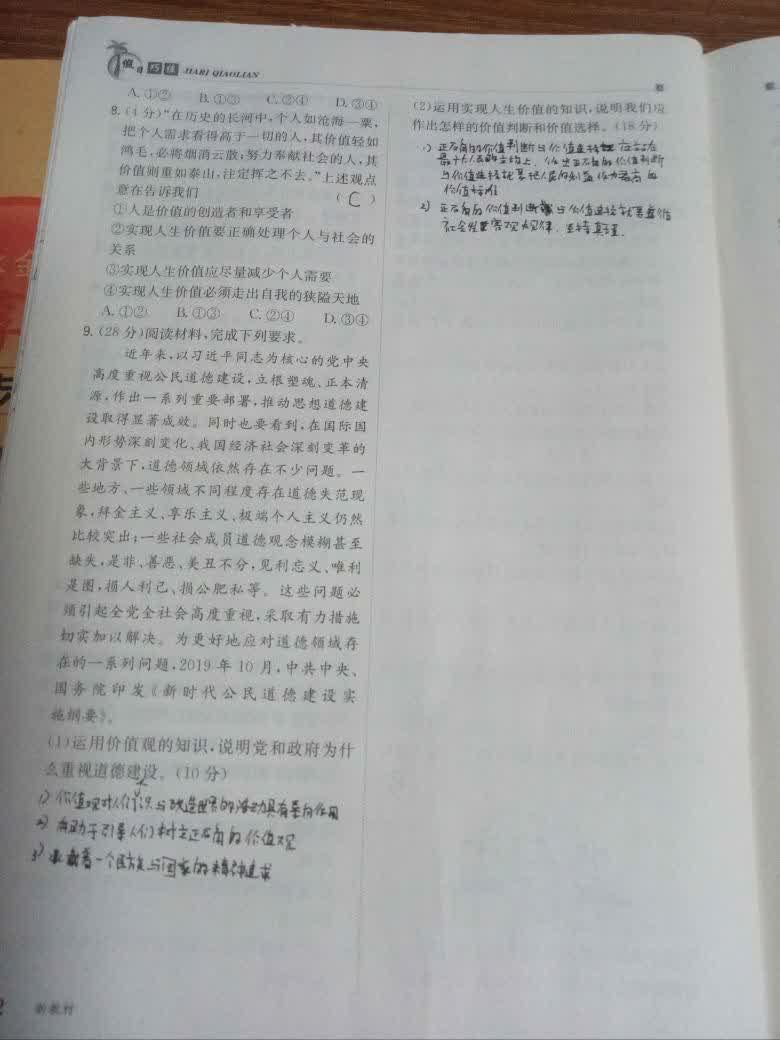 假日 巧练 JIARI QIAOLIAN
A.①② B.①③ C.②④ D.③④
8.(4分)“在历史的长河中,个人如沧海一粟,
把个人需求看得高于一切的人,其价值轻如
鸿毛,必将烟消云散;努力奉献社会的人,其
价值则重如泰山,注定挥之不去。”上述观点
意在告诉我们 ( C )
①人是价值的创造者和享受者
②实现人生价值要正确处理个人与社会的
关系
③实现人生价值应尽量减少个人需要
④实现人生价值必须走出自我的狭隘天地
A.①② B.①③ C.②④ D.③④
9.(28分)阅读材料,完成下列要求。
近年来,以习近平同志为核心的党中央
高度重视公民道德建设,立根塑魂、正本清
源,作出一系列重要部署,推动思想道德建
设取得显著成效。同时也要看到,在国际国
内形势深刻变化、我国经济社会深刻变革的
大背景下,道德领域依然存在不少问题。一
些地方、一些领域不同程度存在道德失范现
象,拜金主义、享乐主义、极端个人主义仍然
比较突出;一些社会成员道德观念模糊甚至
缺失,是非、善恶、美丑不分,见利忘义、唯利
是图,损人利己、损公肥私等。这些问题必
须引起全党全社会高度重视,采取有力措施
切实加以解决。为更好地应对道德领域存
在的一系列问题,2019年10月,中共中央、
国务院印发《新时代公民道德建设实
施纲要》。
(1)运用价值观的知识,说明党和政府为什
么重视道德建设。(10分)
1) 价值观对人们认识与改造世界的活动具有导向作用
2) 有助于引导人们树立正确的价值观
3) 承载着一个民族与国家的精神追求
新教材
(2)运用实现人生价值的知识,说明我们应
作出怎样的价值判断和价值选择。(18分)
1) 正确的价值判断与价值选择 应站在
最广大人民的立场上,作出正确的价值判断
与价值选择就是把人民的利益作为最高的
价值标准
2) 正确的价值判断与价值选择就要遵循
社会发展客观规律,坚持真理.